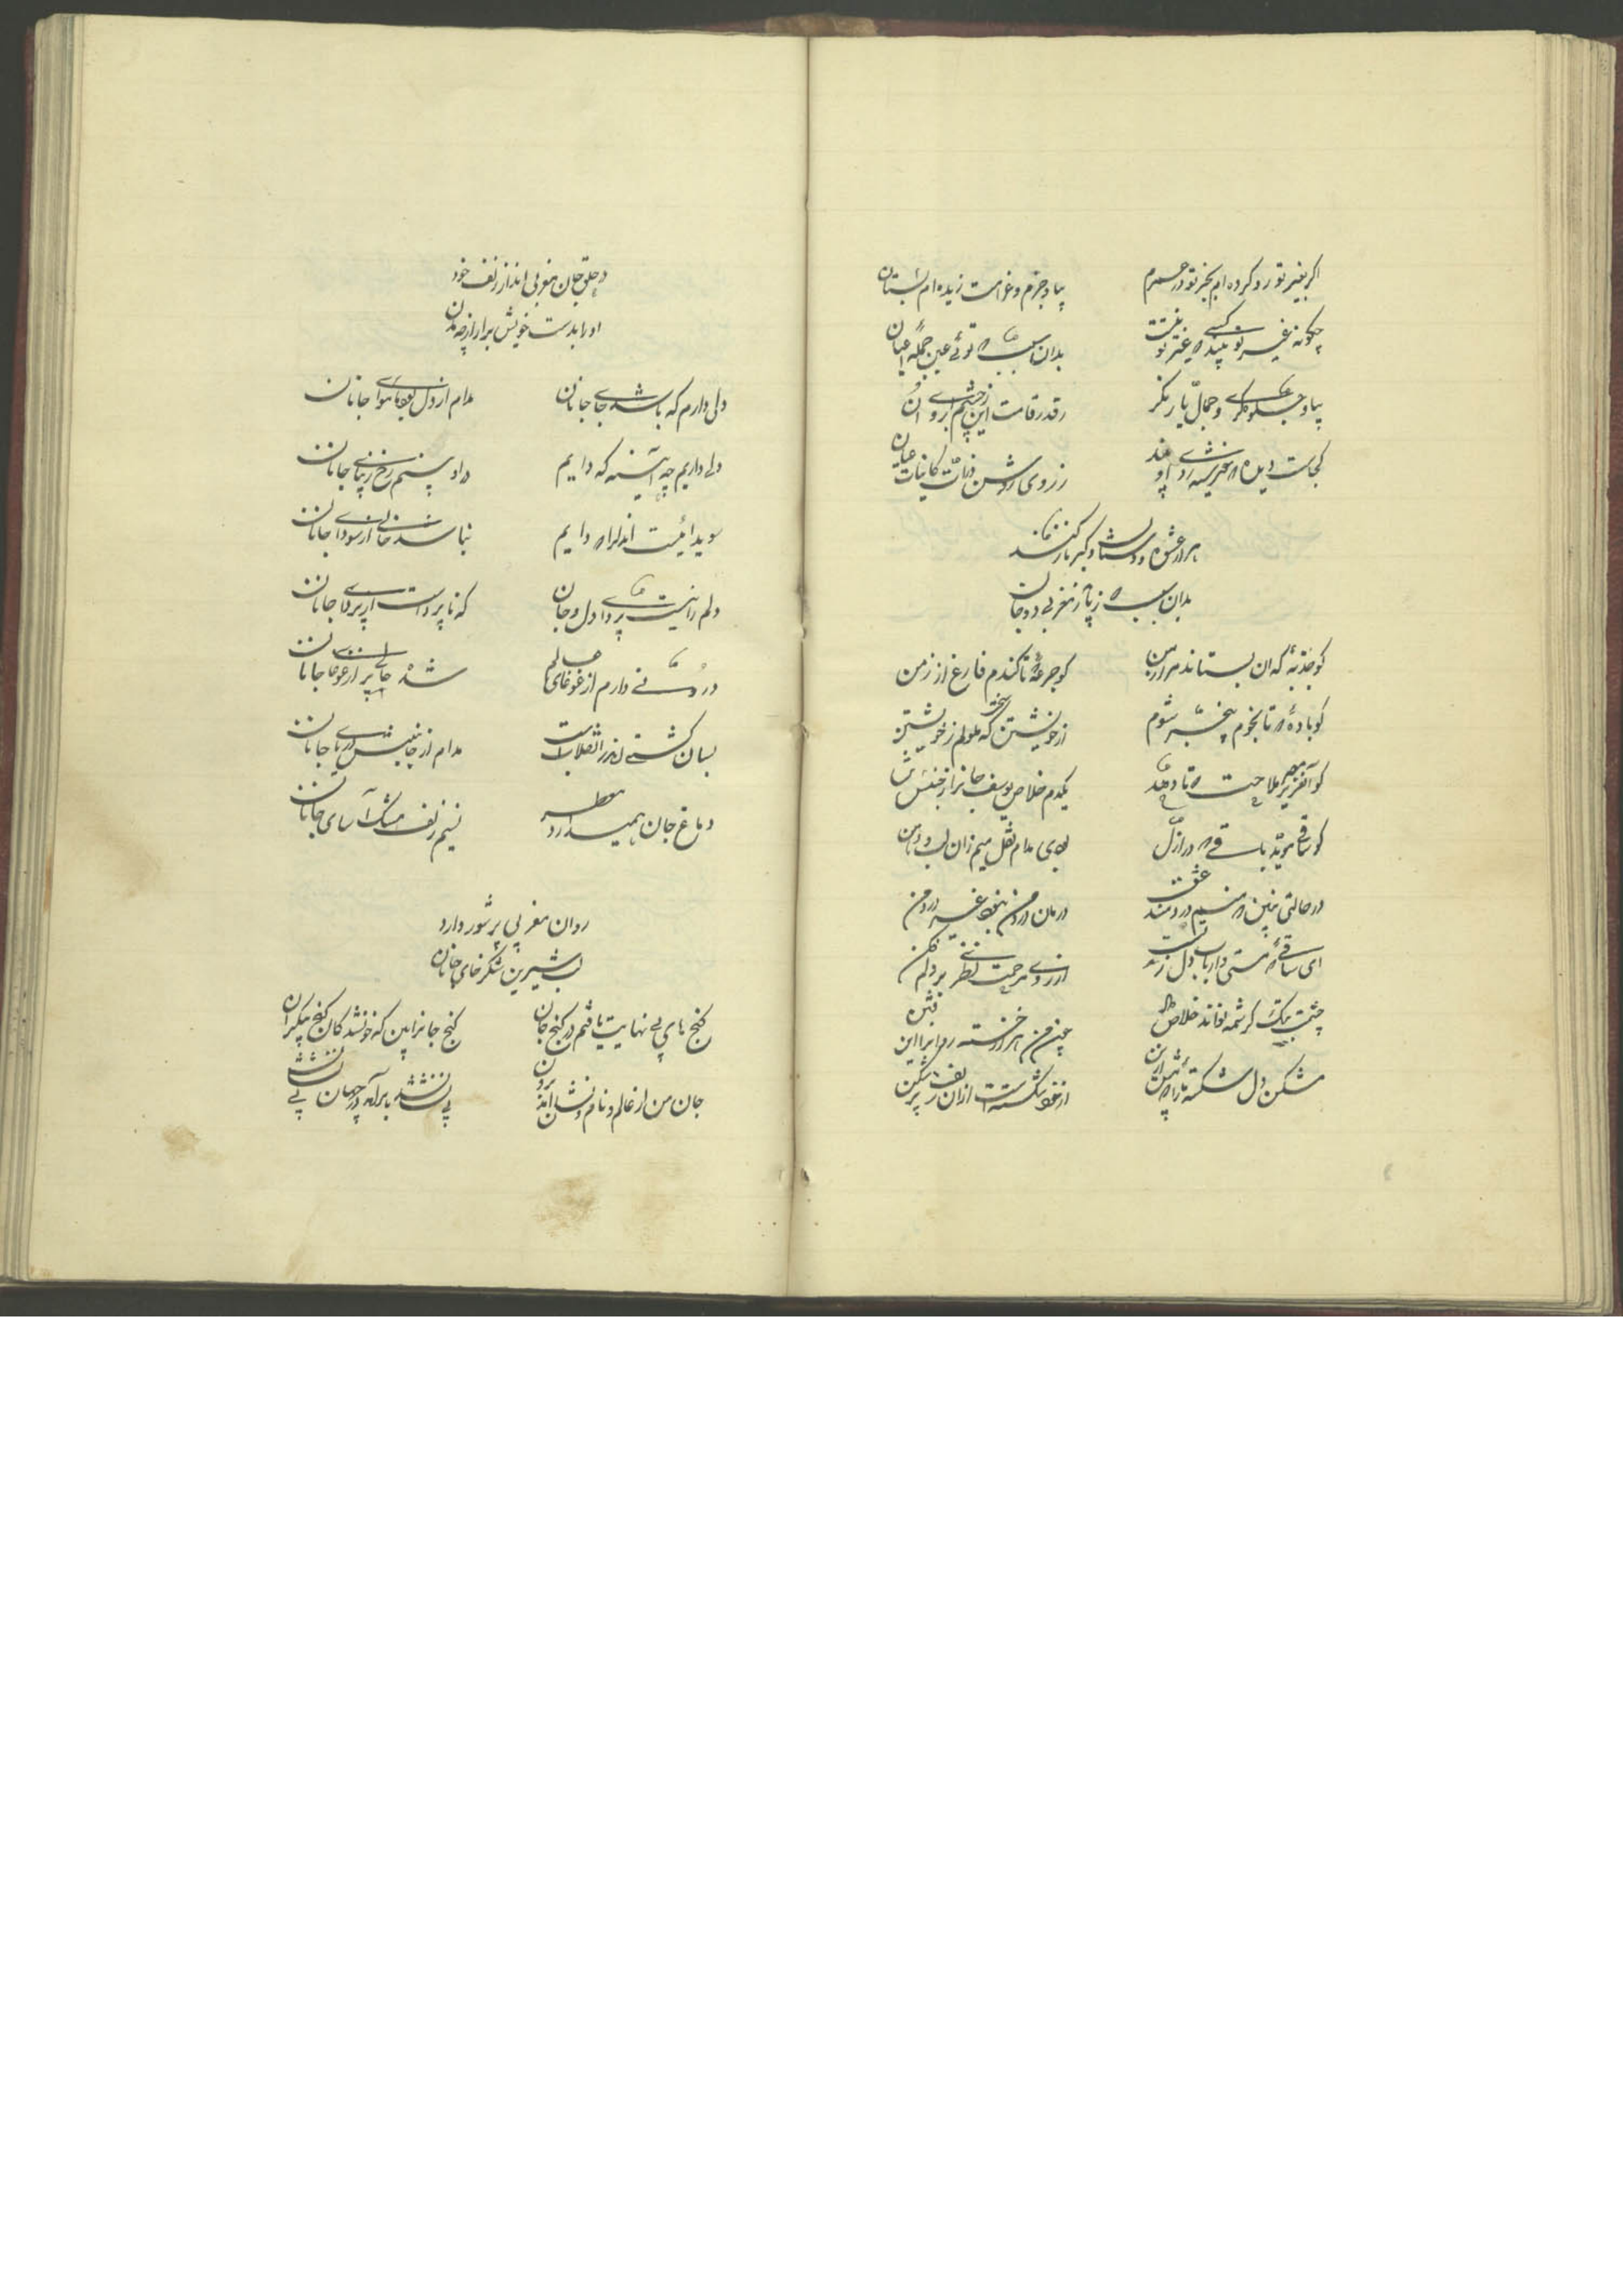 اکر بغیر تو رو کرده ام بجز تو در حسرتم بیا و جرم و غرامت ز دیده ام بستان
چکونه غیر تو بیند کسی که غیر تو نیست بدان سبب که توئی عین جمله اعیان
بیا و جلوه کری و جمال یار نکر ز قد و قامت این و ز چشم و ابروی آن
کجاست دیده که خورشید روی او بیند ز روی روشن ذرات کاینات عیان
هزار عشوه و دستان و کبر و ناز کند
بدان سبب که ز مغربی دل و جان
کو جذبهٔ که آن بستاند مرا ز من کو جرعهٔ تا کندم فارغ از زمن
کو بادهٔ که تا بخورم بیخبر شوم از خویشتن که سخت ملولم ز خویشتن
کو آن عزیز مصر ملاحت که تا دهد یکدم خلاص یوسف جانرا ز حبس تن
کو ساقی باقی که در ازل بودی مدام نقل میم زان لب و دهن
در حالتی چنین که منم دردمند عشق درمان درد من نبود غیر درد من
ای ساقی که مستی ارباب دل ز تست از روی مرحمت نظری بر دلم فکن
چشمت بیک کرشمه تواند خلاص داد چون من هزار خسته روانرا ازین فتن
مشکن دل شکسته ما را از خود شکسته است ازان زلف پر شکن
در حلق جان مغربی انداز زلف خود
او را بدست خویش برار از چه بدن
دلی دارم که باشد جای جانان مدام از دل بود ماوای جانان
دلی داریم چه آیینه که دایم درو بینم رخ زیبای جانان
سویدائیست اندر دل که دایم نباشد خالی از سودای جانان
دلم را نیست پروای دل و جان که ناپرداست از پروای جانان
درونی دارم از غوغای عالم شده خالی پر از غوغای جانان
بسان کشتی اندر انقلابست مدام از جنبش دریای جانان
دماغ جان همی دارد معطر نسیم زلف مشک آسای جانان
روان مغربی پر شور دارد
لب شیرین شکر خای جانان
کنج های بی نهایت یافتم در کنج جان کنج جانرا بین که خود شد کان کنج بیکران
جان من از عالم و نام و نشان آمد برون بی نشان شد بامرآنکه در جهان بی نشان